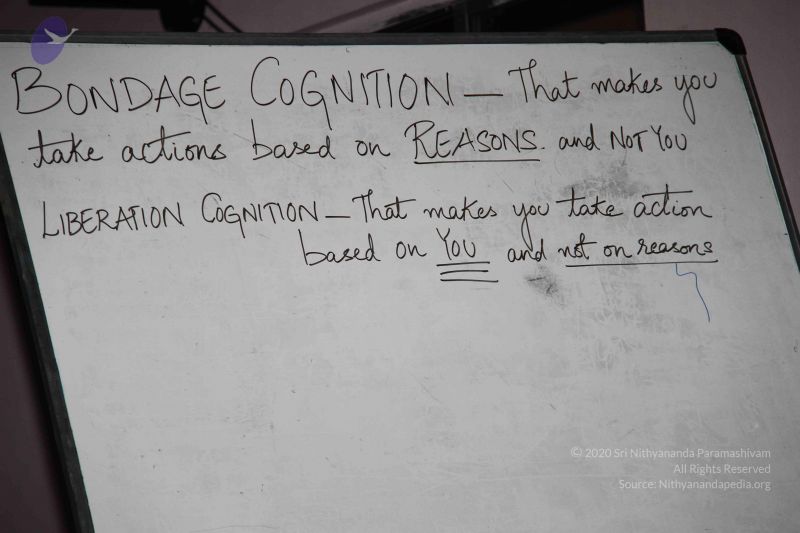 BONDAGE COGNITION — That makes you
take actions based on REASONS. and NOT YOU
LIBERATION COGNITION — That makes you take action
based on YOU and not on reasons
© 2020 Sri Nithyananda Paramashivam
All Rights Reserved
Source: Nithyanandapedia.org